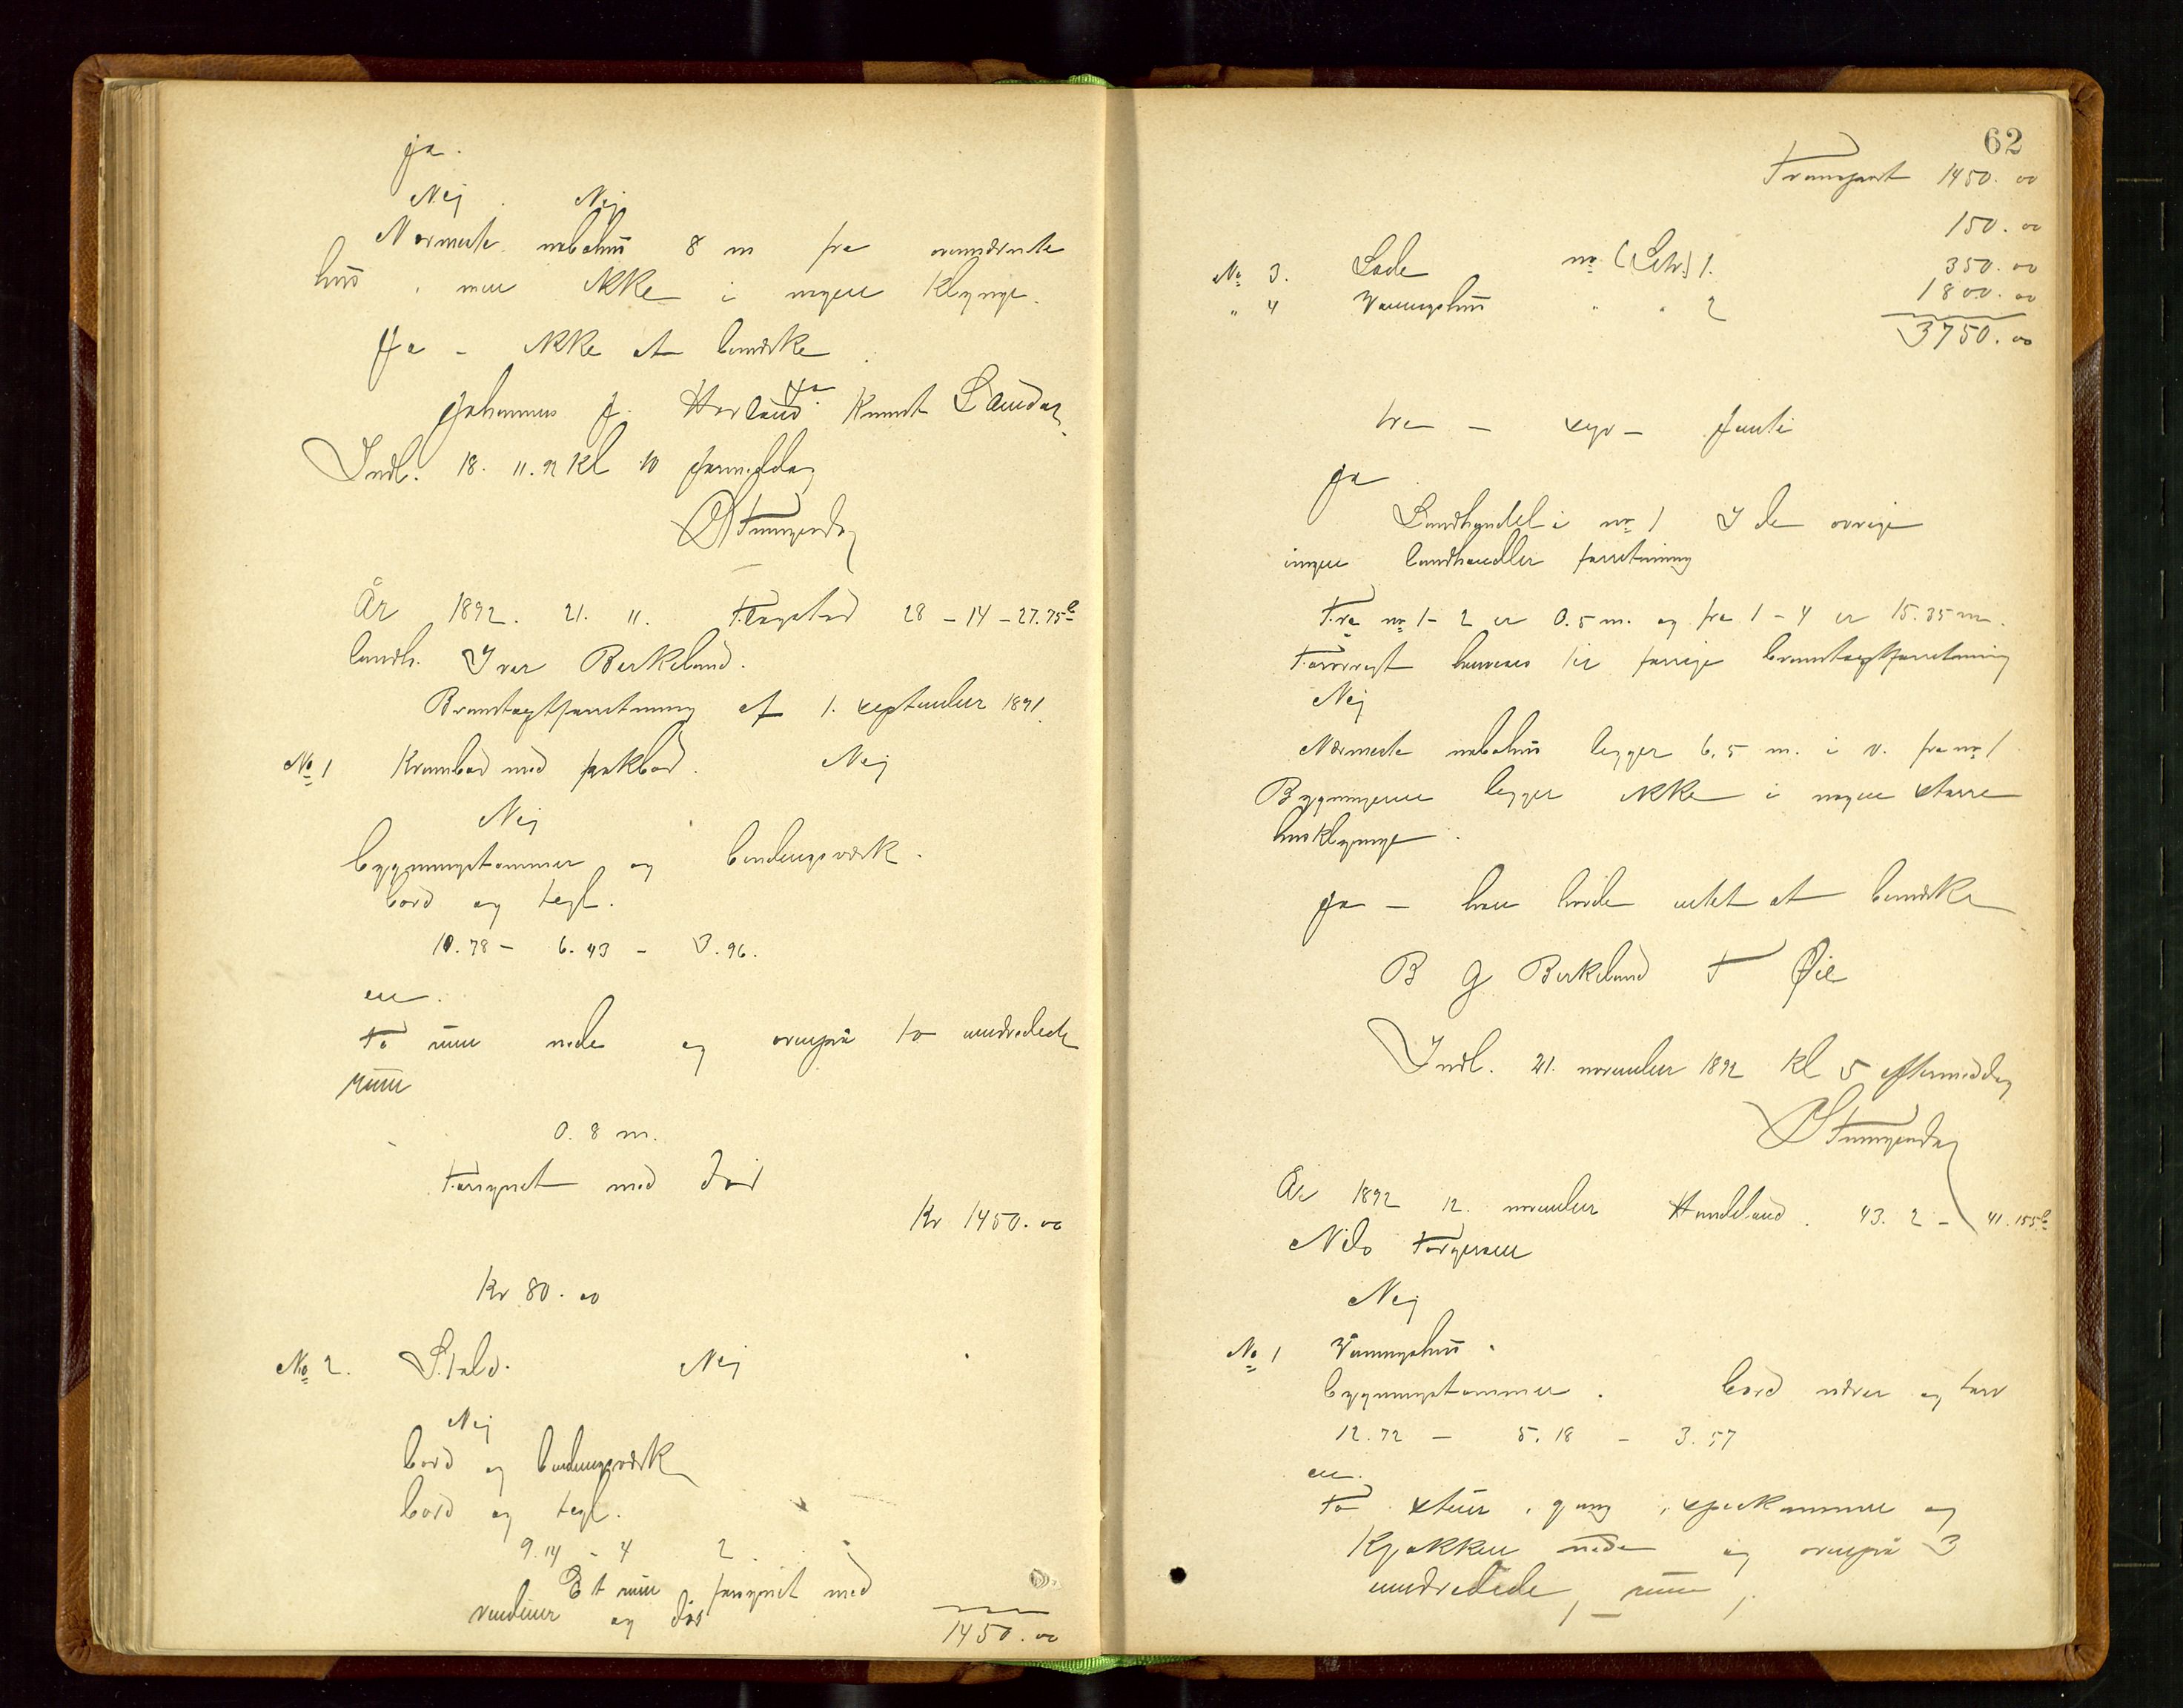 ja.
Nej . Nej
Nærmeste nabohus 8 m fra ovennævnte
hus , men ikke i nogen klynge.
Ja – ikke at bemærke
Johannes J. Havland Knut
Indl. 18. 11. 92 kl 10 formiddag
År 1892. 21. 11. 28 – 14 – 27.75
landh. Iver Birkeland.
Brandtagtforretning af 1. september 1891
No 1 Krambod med pakbod. Nej
Nej
bygningstømmer og bindingsværk.
bord og tegl.
10.78 – 6.43 – 3.96.
en.
To rum nede og ovenpå to uindredede
rum
0.8 m.
Forsynet med dør
Kr 1450.00
Kr 80.00
No 2. Stald. Nej
Nej
bord og bindingsværk
bord og tegl.
9.14 – 4 2
Et rum forsynet med
vinduer og dør
1450.00
62
Transport 1450.00
150.00
No 3. Lade no 1. 350.00
" 4 Vaaningshus " " 2 1800.00
3750.00
tre – syv – femti
ja
Landhandel i no 1 I de øvrige
ingen landhandler forretning
Fra no 1 – 2 er 0.5 m. og fra 1 – 4 er 15.35 m.
Forøvrigt henvises til forrige brandtagtforretning
Nej
Nærmeste nabohus ligger 6,5 m. i v. fra no 1
Bygningerne ligger ikke i nogen større
husklynge.
ja – han havde intet at bemærke
B G Birkeland T Øie
Indl. 21. november 1892 kl 5 eftermiddag
År 1892 12. november Hundeland. 43. 2 – 41.155
Nils Torgersen
Nej
No 1 Vaaningshus.
bygningstømmer. bord næver og torv
12.72 – 5.18 – 3.57
en.
To stuer, gang, spiskammer og
kjøkken nede og ovenpå 3
uindredede rum